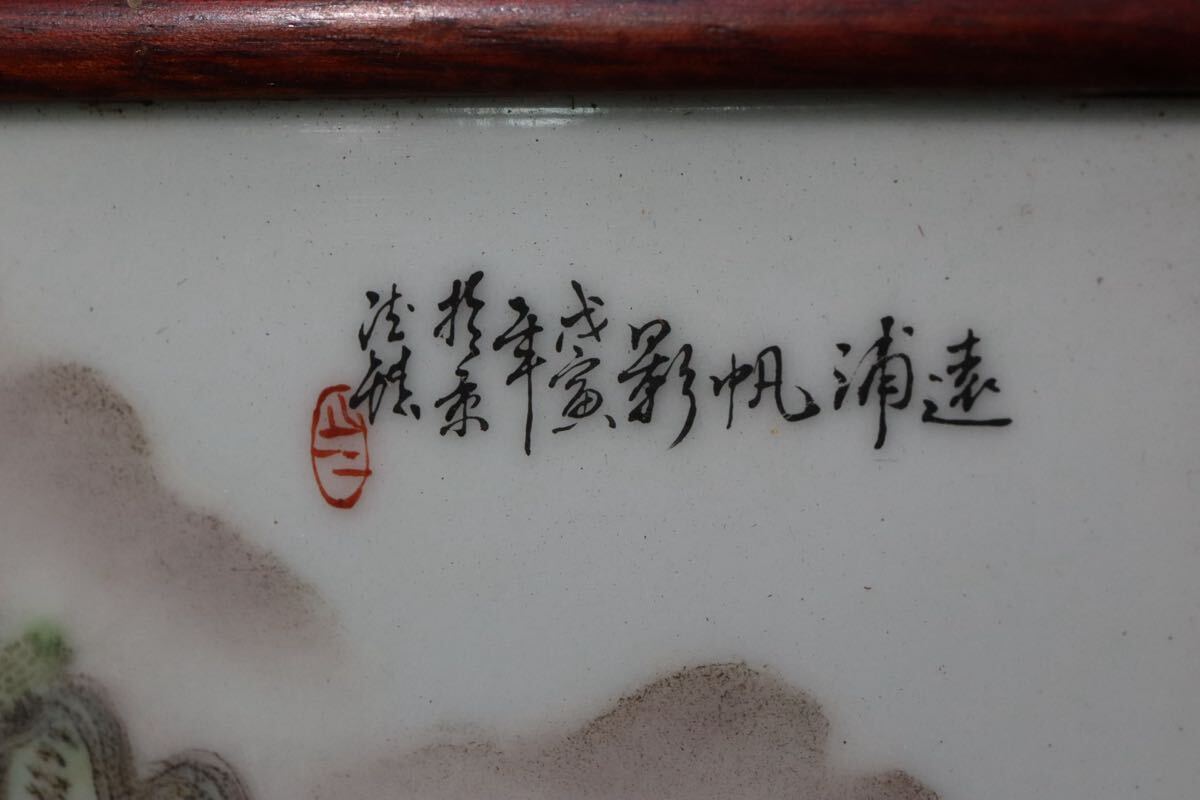 遠浦帆影
戊寅
年
於景
德鎮